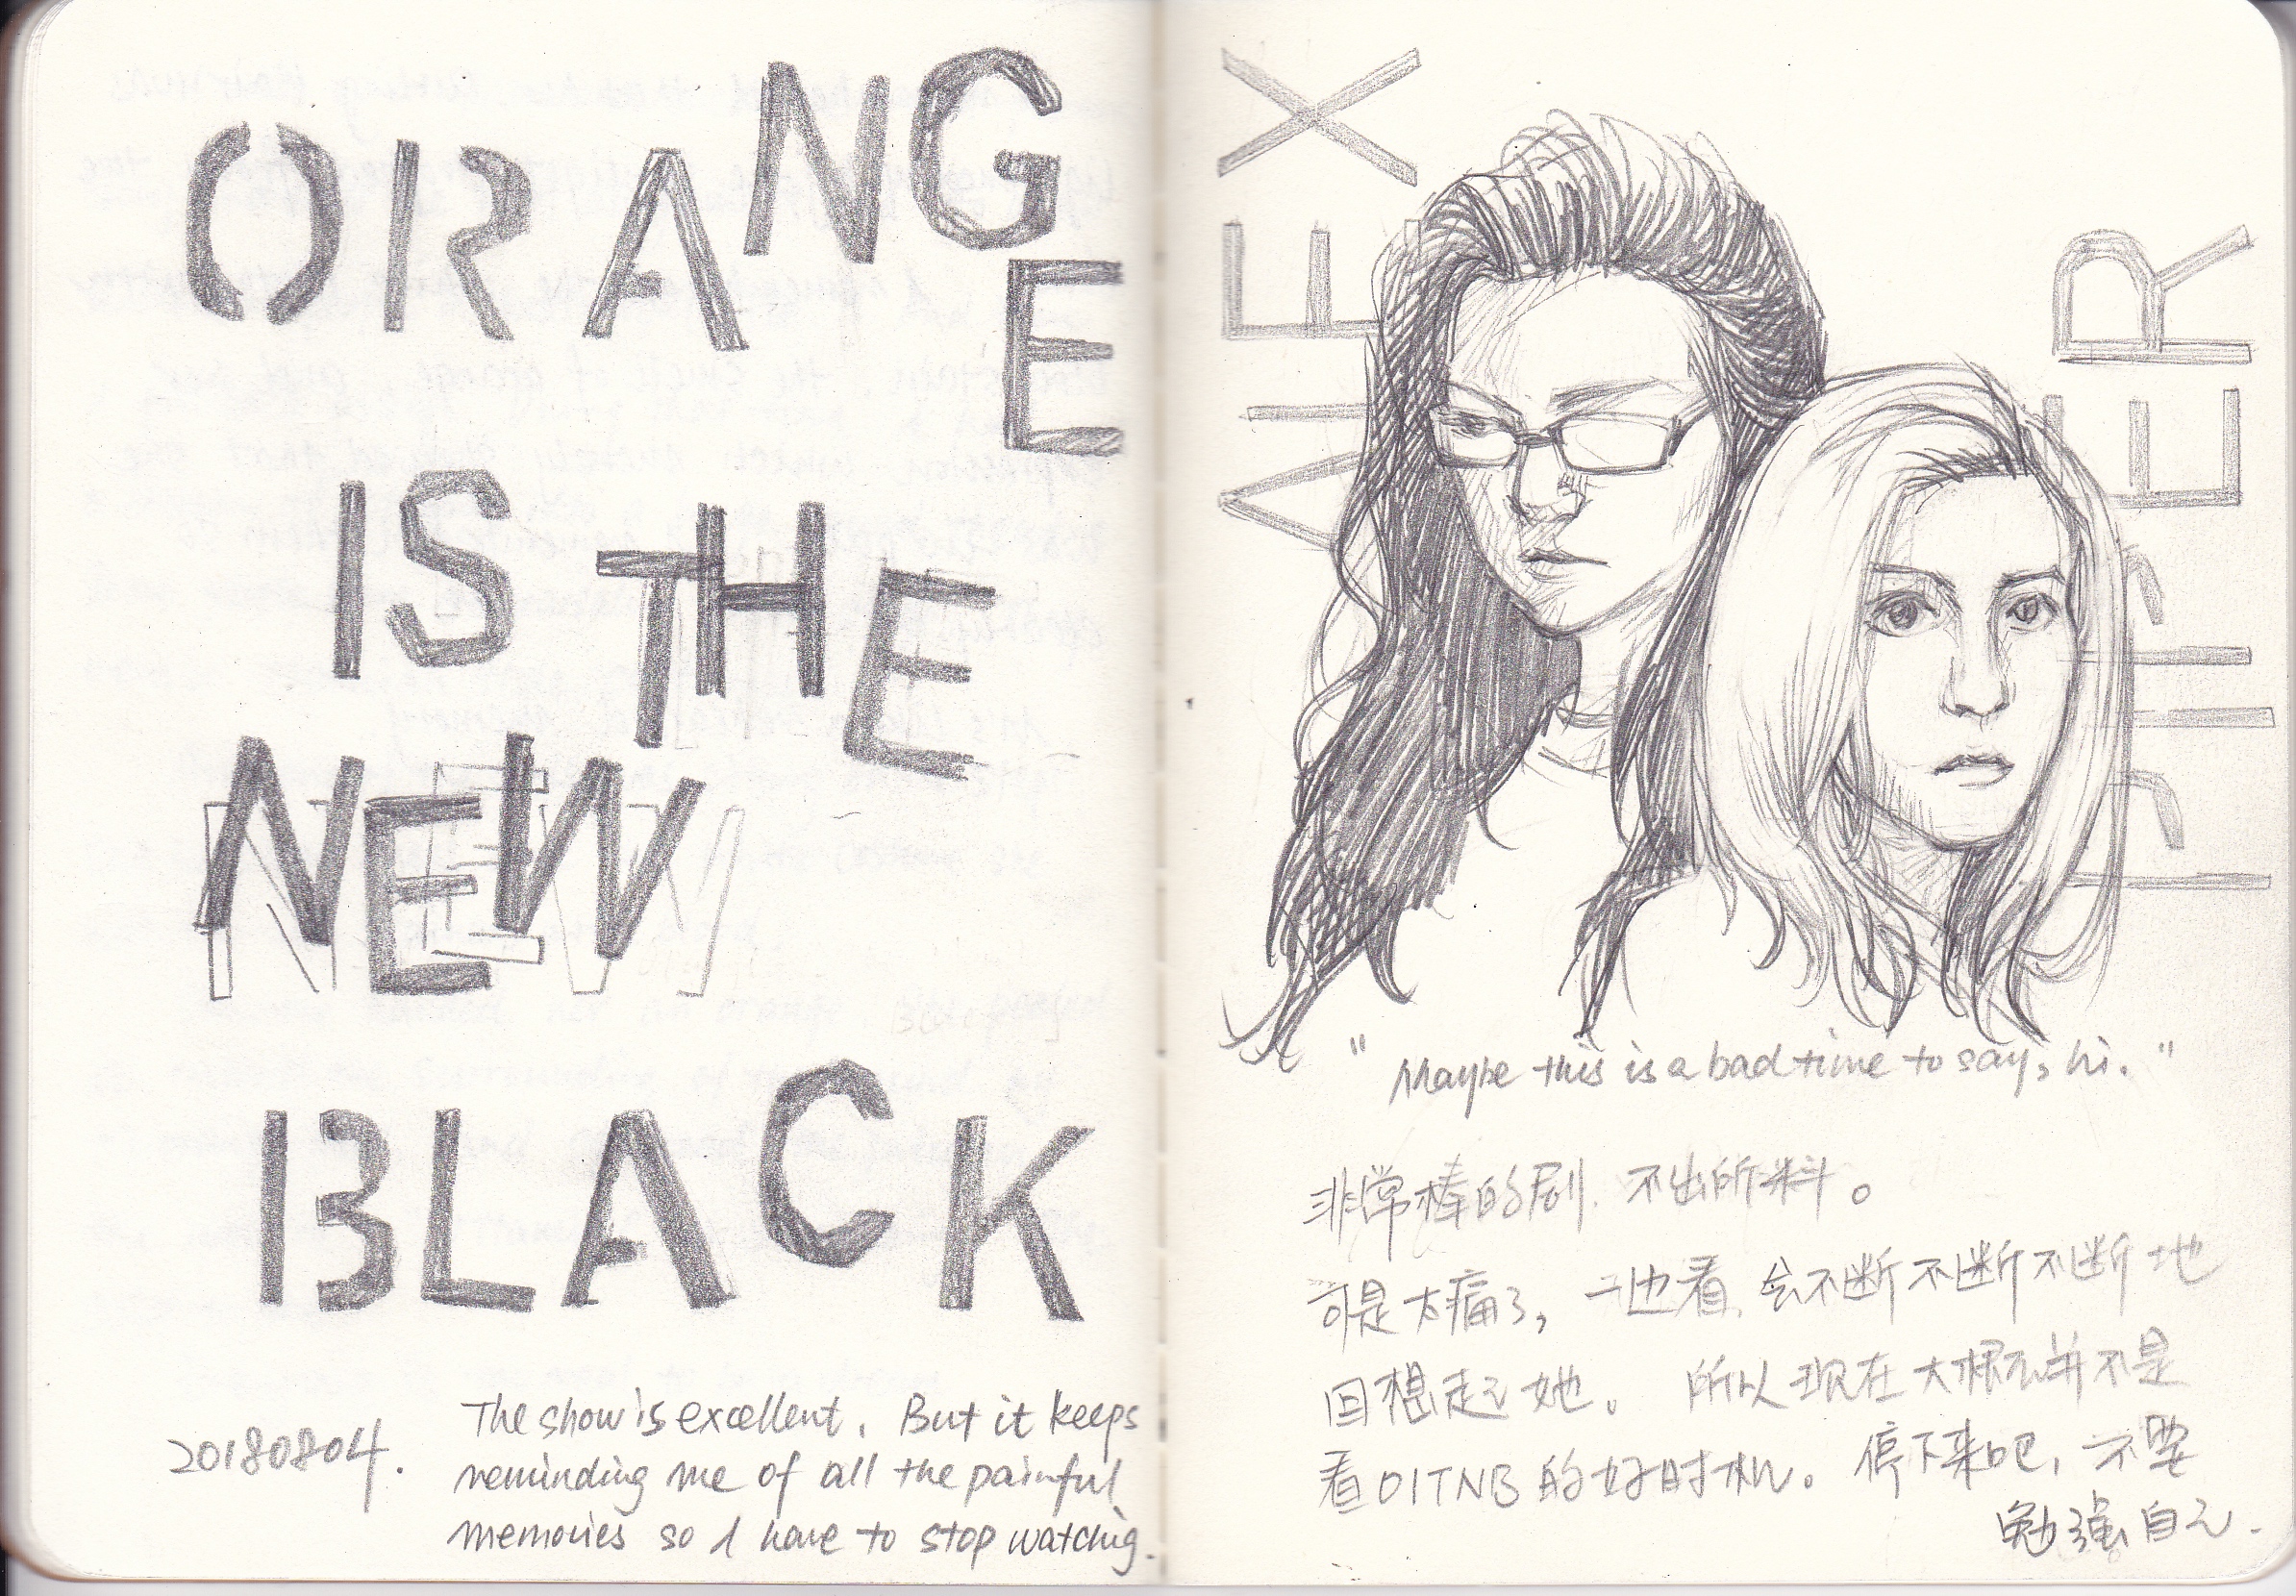 ORANGE
IS THE
NEW
BLACK
20180804.
The show is excellent. But it keeps
reminding me of all the painful
memories so I have to stop watching.
ALEX
PIPER
"Maybe this is a bad time to say, hi."
非常棒的剧. 不出所料。
可是太痛了，一边看，会不断不断不断地
回想起她。所以现在大概并不是
看OITNB的好时机。停下来吧，不要
勉强自己.